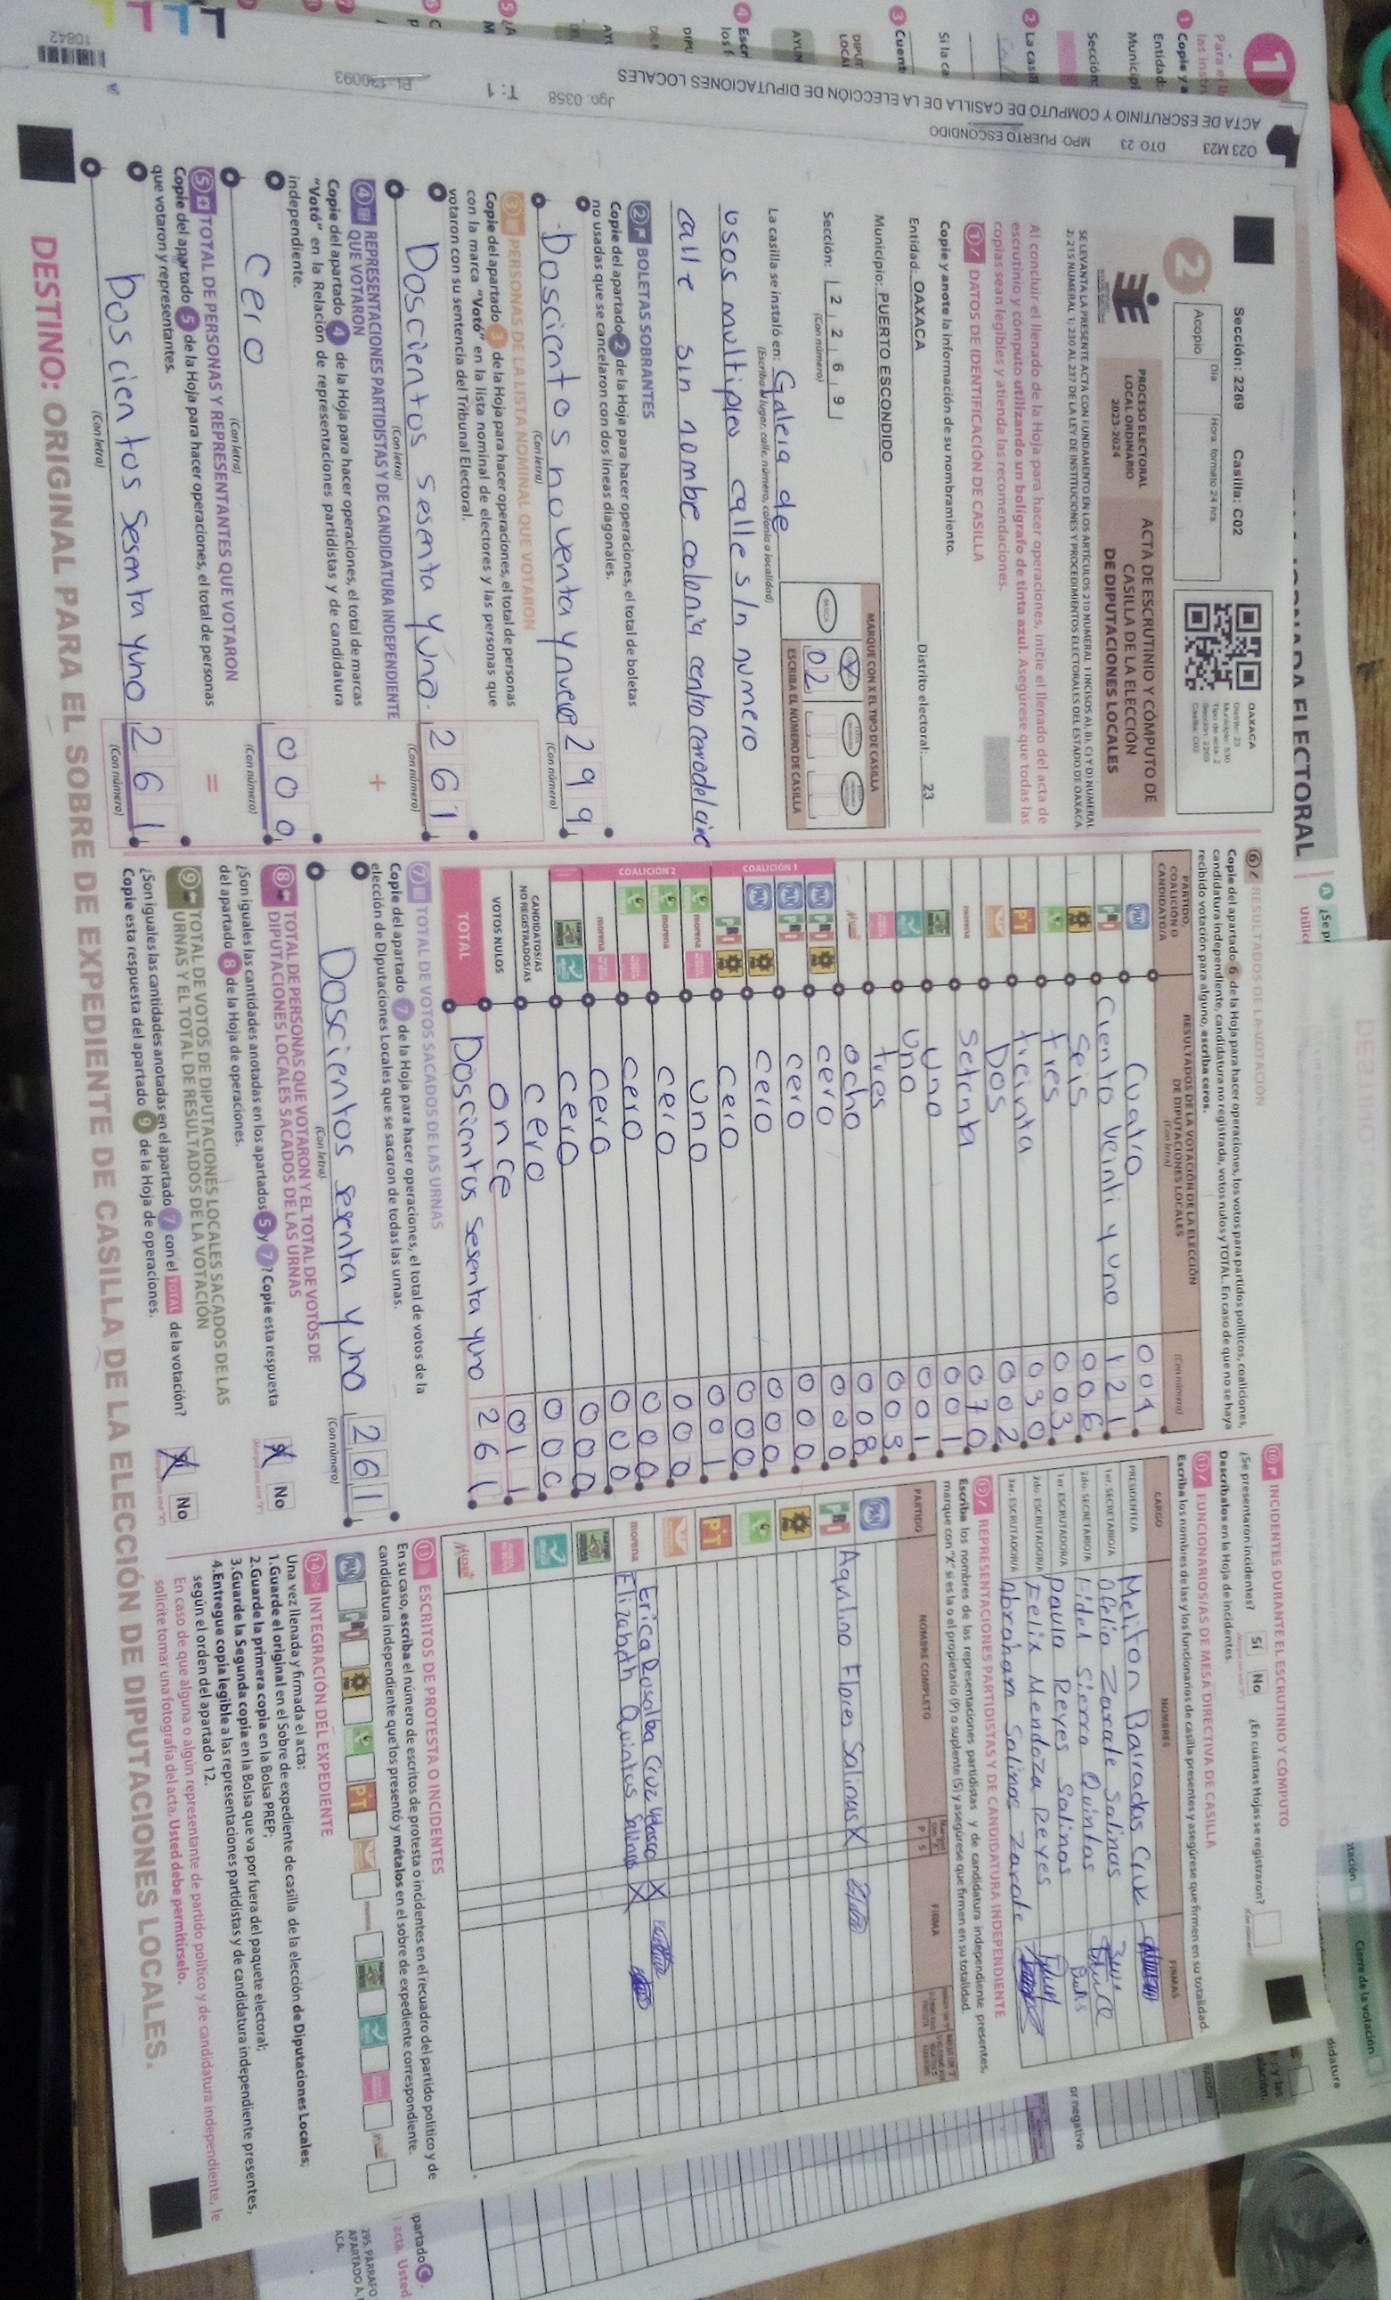 JORNADA ELECTORAL
Sección: 2269 Casilla: C02
Acopio
Día
Hora: formato 24 hrs.
OAXACA
2
PROCESO ELECTORAL
LOCAL ORDINARIO
2023-2024
ACTA DE ESCRUTINIO Y CÓMPUTO DE
CASILLA DE LA ELECCIÓN
DE DIPUTACIONES LOCALES
Al concluir el llenado de la Hoja para hacer operaciones, inicie el llenado del acta de
escrutinio y cómputo utilizando un bolígrafo de tinta azul. Asegúrese que todas las
copias sean legibles y atienda las recomendaciones.
1 DATOS DE IDENTIFICACIÓN DE CASILLA
Copie y anote la información de su nombramiento.
Entidad: OAXACA Distrito electoral: 23
Municipio: PUERTO ESCONDIDO
Sección: 2 2 6 9
(Con número)
MARQUE CON X EL TIPO DE CASILLA
X
02
ESCRIBA EL NÚMERO DE CASILLA
La casilla se instaló en: Galeia de
(Escriba el lugar, calle, número, colonia o localidad)
usos multiples calle s/n numero
calle sin nombe colonia centro
2 BOLETAS SOBRANTES
Copie del apartado 2 de la Hoja para hacer operaciones, el total de boletas
no usadas que se cancelaron con dos líneas diagonales.
Doscientos noventa y nueve 299
(Con letra) (Con número)
3 PERSONAS DE LA LISTA NOMINAL QUE VOTARON
Copie del apartado 3 de la Hoja para hacer operaciones, el total de personas
con la marca "Votó" en la lista nominal de electores y las personas que
votaron con su sentencia del Tribunal Electoral.
Doscientos sesenta y uno. 261
(Con letra) (Con número)
4 REPRESENTACIONES PARTIDISTAS Y DE CANDIDATURA INDEPENDIENTE
QUE VOTARON
+
Copie del apartado 4 de la Hoja para hacer operaciones, el total de marcas
"Votó" en la Relación de representaciones partidistas y de candidatura
independiente.
cero 000
(Con letra) (Con número)
5 TOTAL DE PERSONAS Y REPRESENTANTES QUE VOTARON
=
Copie del apartado 5 de la Hoja para hacer operaciones, el total de personas
que votaron y representantes.
Doscientos sesenta y uno 261
(Con letra) (Con número)
6 RESULTADOS DE LA VOTACIÓN
Copie del apartado 6 de la Hoja para hacer operaciones, los votos para partidos políticos, coaliciones,
candidatura independiente, candidatura no registrada, votos nulos y TOTAL. En caso de que no se haya
recibido votación para alguno, escriba ceros.
PARTIDO,
COALICIÓN O
CANDIDATO/A
RESULTADOS DE LA VOTACIÓN DE LA ELECCIÓN
DE DIPUTACIONES LOCALES
(Con letra)
(Con número)
PAN Cuatro 004
PRI Ciento veinti y uno 121
Seis 006
tres 003
PT treinta 030
Dos 002
morena Setenta 070
uno 001
uno 001
tres 003
ocho 008
COALICIÓN 1
PAN PRI cero 000
PAN PRI cero 000
PAN cero 000
PRI cero 000
COALICIÓN 2
morena uno 001
morena cero 000
cero 000
morena cero 000
cero 000
CANDIDATOS/AS
NO REGISTRADOS/AS
cero 000
VOTOS NULOS once 011
TOTAL Doscientos sesenta y uno 261
7 TOTAL DE VOTOS SACADOS DE LAS URNAS
Copie del apartado 7 de la Hoja para hacer operaciones, el total de votos de la
elección de Diputaciones Locales que se sacaron de todas las urnas.
Doscientos sesenta y uno 261
(Con letra) (Con número)
8 TOTAL DE PERSONAS QUE VOTARON Y EL TOTAL DE VOTOS DE
DIPUTACIONES LOCALES SACADOS DE LAS URNAS
¿Son iguales las cantidades anotadas en los apartados 5 y 7? Copie esta respuesta
del apartado 8 de la Hoja de operaciones.
Sí No
9 TOTAL DE VOTOS DE DIPUTACIONES LOCALES SACADOS DE LAS
URNAS Y EL TOTAL DE RESULTADOS DE LA VOTACIÓN
¿Son iguales las cantidades anotadas en el apartado 7 con el TOTAL de la votación?
Copie esta respuesta del apartado 9 de la Hoja de operaciones.
Sí No
10 INCIDENTES DURANTE EL ESCRUTINIO Y CÓMPUTO
¿Se presentaron incidentes? Sí No ¿En cuántas Hojas se registraron?
Descríbalos en la Hoja de incidentes.
11 FUNCIONARIOS/AS DE MESA DIRECTIVA DE CASILLA
Escriba los nombres de las y los funcionarios de casilla presentes y asegúrese que firmen en su totalidad.
CARGO NOMBRES FIRMAS
PRESIDENTE/A Meliton Bairados Cruz
1er. SECRETARIO/A Ofelia Zarate Salinas
2do. SECRETARIO/A Fidel Sierra Quintas
1er. ESCRUTADOR/A Paula Reyes Salinas
2do. ESCRUTADOR/A Felix Mendoza Reyes
3er. ESCRUTADOR/A Abraham Salinas Zarate
12 REPRESENTACIONES PARTIDISTAS Y DE CANDIDATURA INDEPENDIENTE
Escriba los nombres de las representaciones partidistas y de candidatura independiente presentes,
marque con "X" si es la o el propietario (P) o suplente (S) y asegúrese que firmen en su totalidad.
PARTIDO NOMBRE COMPLETO P S FIRMA
PAN
PRI Aquilino Flores Salinas X
PT
morena Erica Rosalba Cruz Velasco X
Elizabeth Quintas Salinas X
13 ESCRITOS DE PROTESTA O INCIDENTES
En su caso, escriba el número de escritos de protesta o incidentes en el recuadro del partido político y de
candidatura independiente que los presentó y métalos en el sobre de expediente correspondiente.
PAN PRI PT morena
14 INTEGRACIÓN DEL EXPEDIENTE
Una vez llenada y firmada el acta:
1.Guarde el original en el Sobre de expediente de casilla de la elección de Diputaciones Locales;
2.Guarde la primera copia en la Bolsa PREP;
3.Guarde la Segunda copia en la Bolsa que va por fuera del paquete electoral;
4.Entregue copia legible a las representaciones partidistas y de candidatura independiente presentes,
según el orden del apartado 12.
En caso de que alguna o algún representante de partido político y de candidatura independiente, le
solicite tomar una fotografía del acta. Usted debe permitírselo.
DESTINO: ORIGINAL PARA EL SOBRE DE EXPEDIENTE DE CASILLA DE LA ELECCIÓN DE DIPUTACIONES LOCALES.
ACTA DE ESCRUTINIO Y COMPUTO DE CASILLA DE LA ELECCIÓN DE DIPUTACIONES LOCALES
023 M23 DTO 23 MPO PUERTO ESCONDIDO
Jgo: 0358 T: 1
10842
1
Copie y a
Entidad:
Municipi
Sección:
2 La casil
Si la ca
3 Cuent
4 Escr
los f
Cierre de la votación